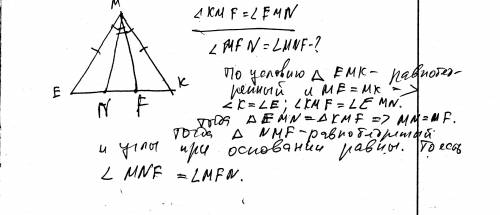 M
E
N
F
K
∠KMF = ∠EMN
∠MFN = ∠MNF - ?
По условию △ EMK - равнобед-
ренный и ME = MK =>
∠K = ∠E; ∠KMF = ∠EMN.
Тогда △EMN = △KMF => MN = MF.
Тогда △ NMF - равнобедренный
и углы при основании равны. То есть
∠ MNF = ∠MFN.